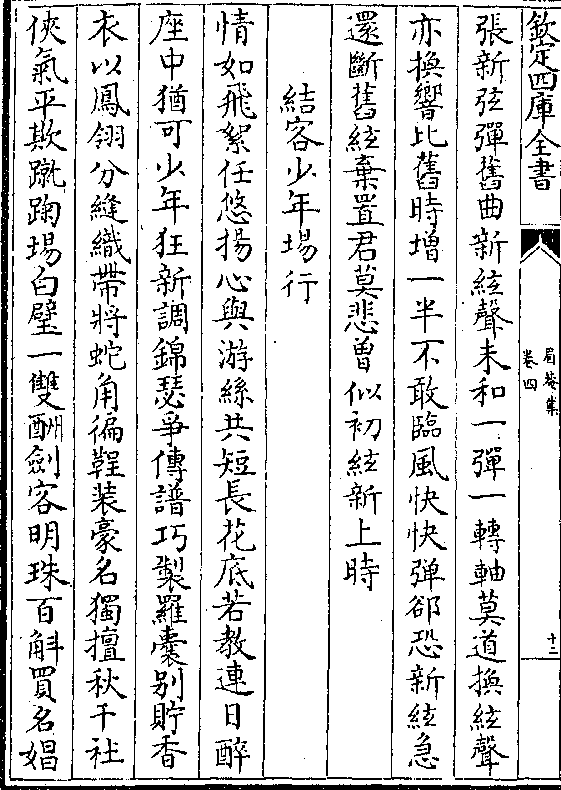 欽定四庫全書
眉菴集
卷四
十二
張新弦彈舊曲新絃聲未和一彈一轉軸莫道換絃聲
亦換響比舊時增一半不敢臨風快快彈郤恐新絃急
還斷舊絃棄置君莫悲曾似初絃新上時
結客少年場行
情如飛絮任悠揚心與游絲共短長花底若教連日醉
座中猶可少年狂新調錦瑟爭傳譜巧製羅囊别貯香
衣以鳳翎分縫織帶將蛇角徧鞓装豪名獨擅秋千社
俠氣平欺蹴踘場白璧一雙酬劍客明珠百斛買名娼